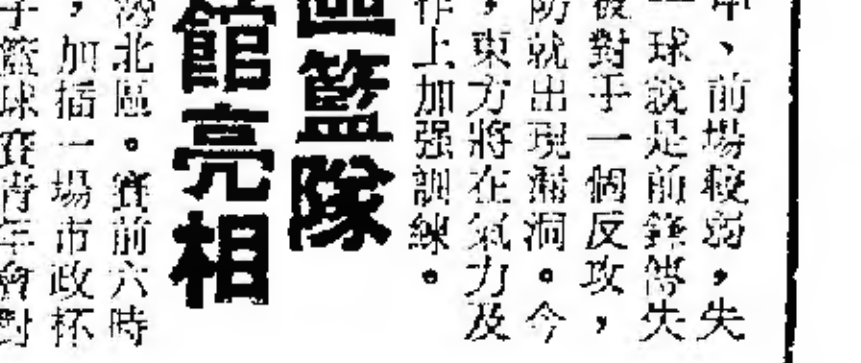 中、前場較弱,失
一球就是前鋒傳失
被對手一個反攻,
防就出現漏洞。今
,東方將在氣力及
作上加强訓練。
區籃隊
館亮相
湾北區。賽前六時
,加插一場市政杯
子籃球賽青年會對